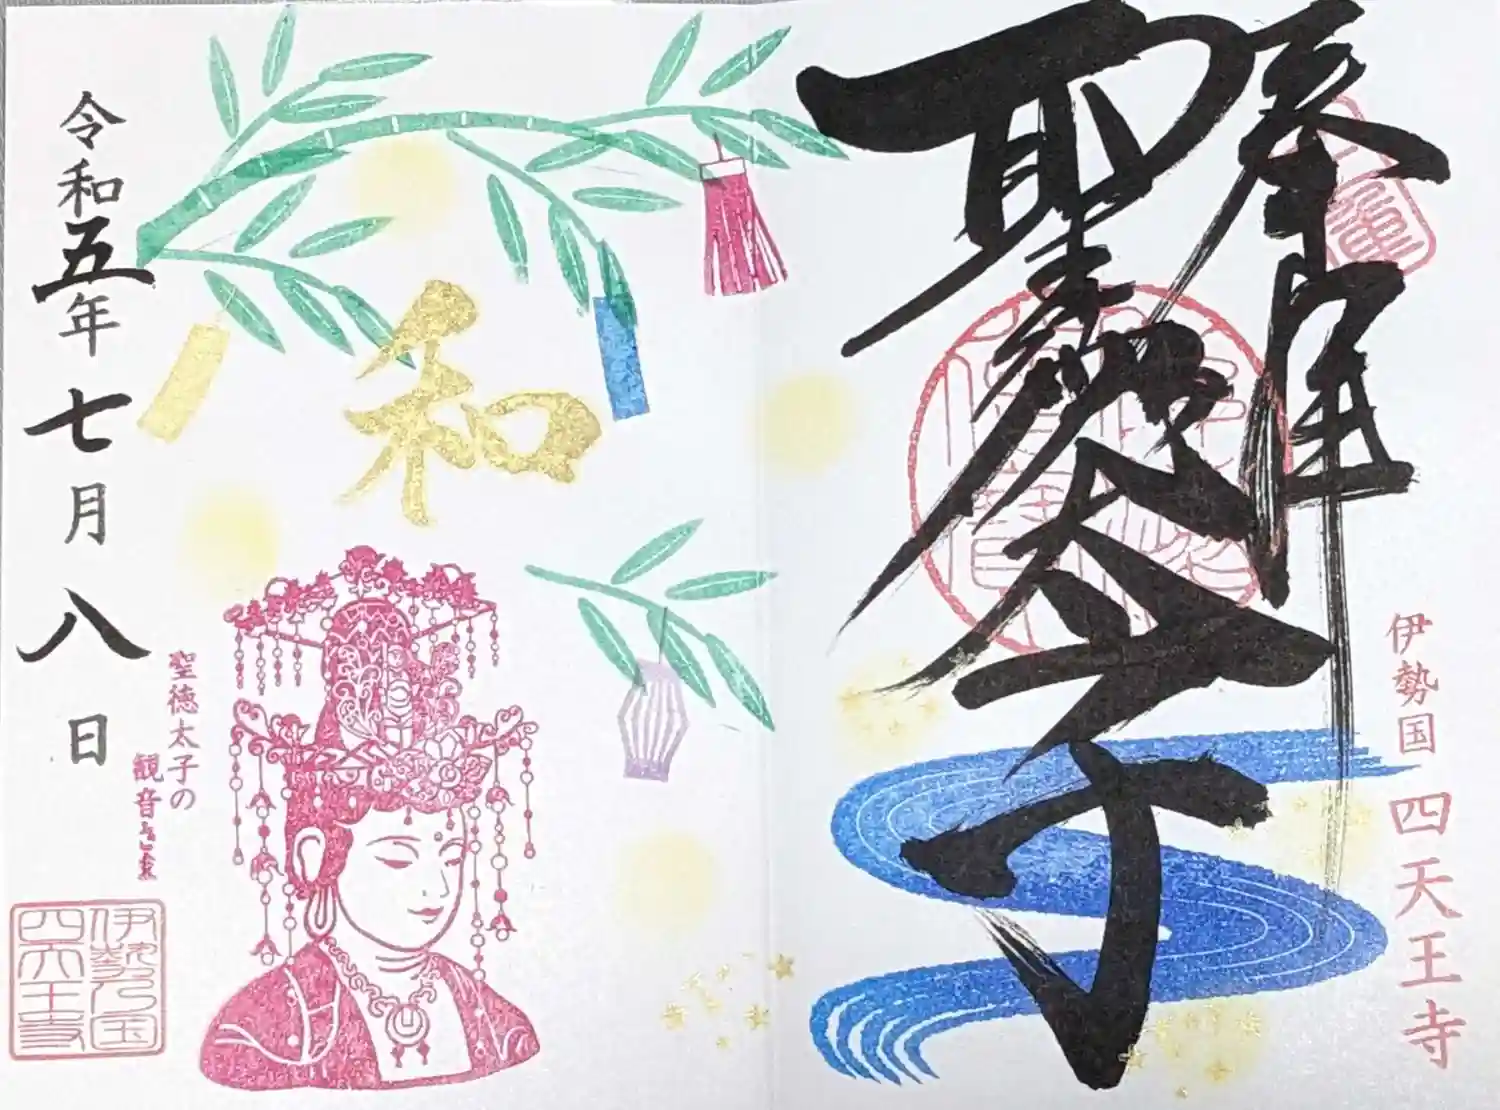 奉拝
聖徳太子
伊勢国 四天王寺
和
令和五年七月八日
聖徳太子の
観音さま
伊勢乃国
四天王寺